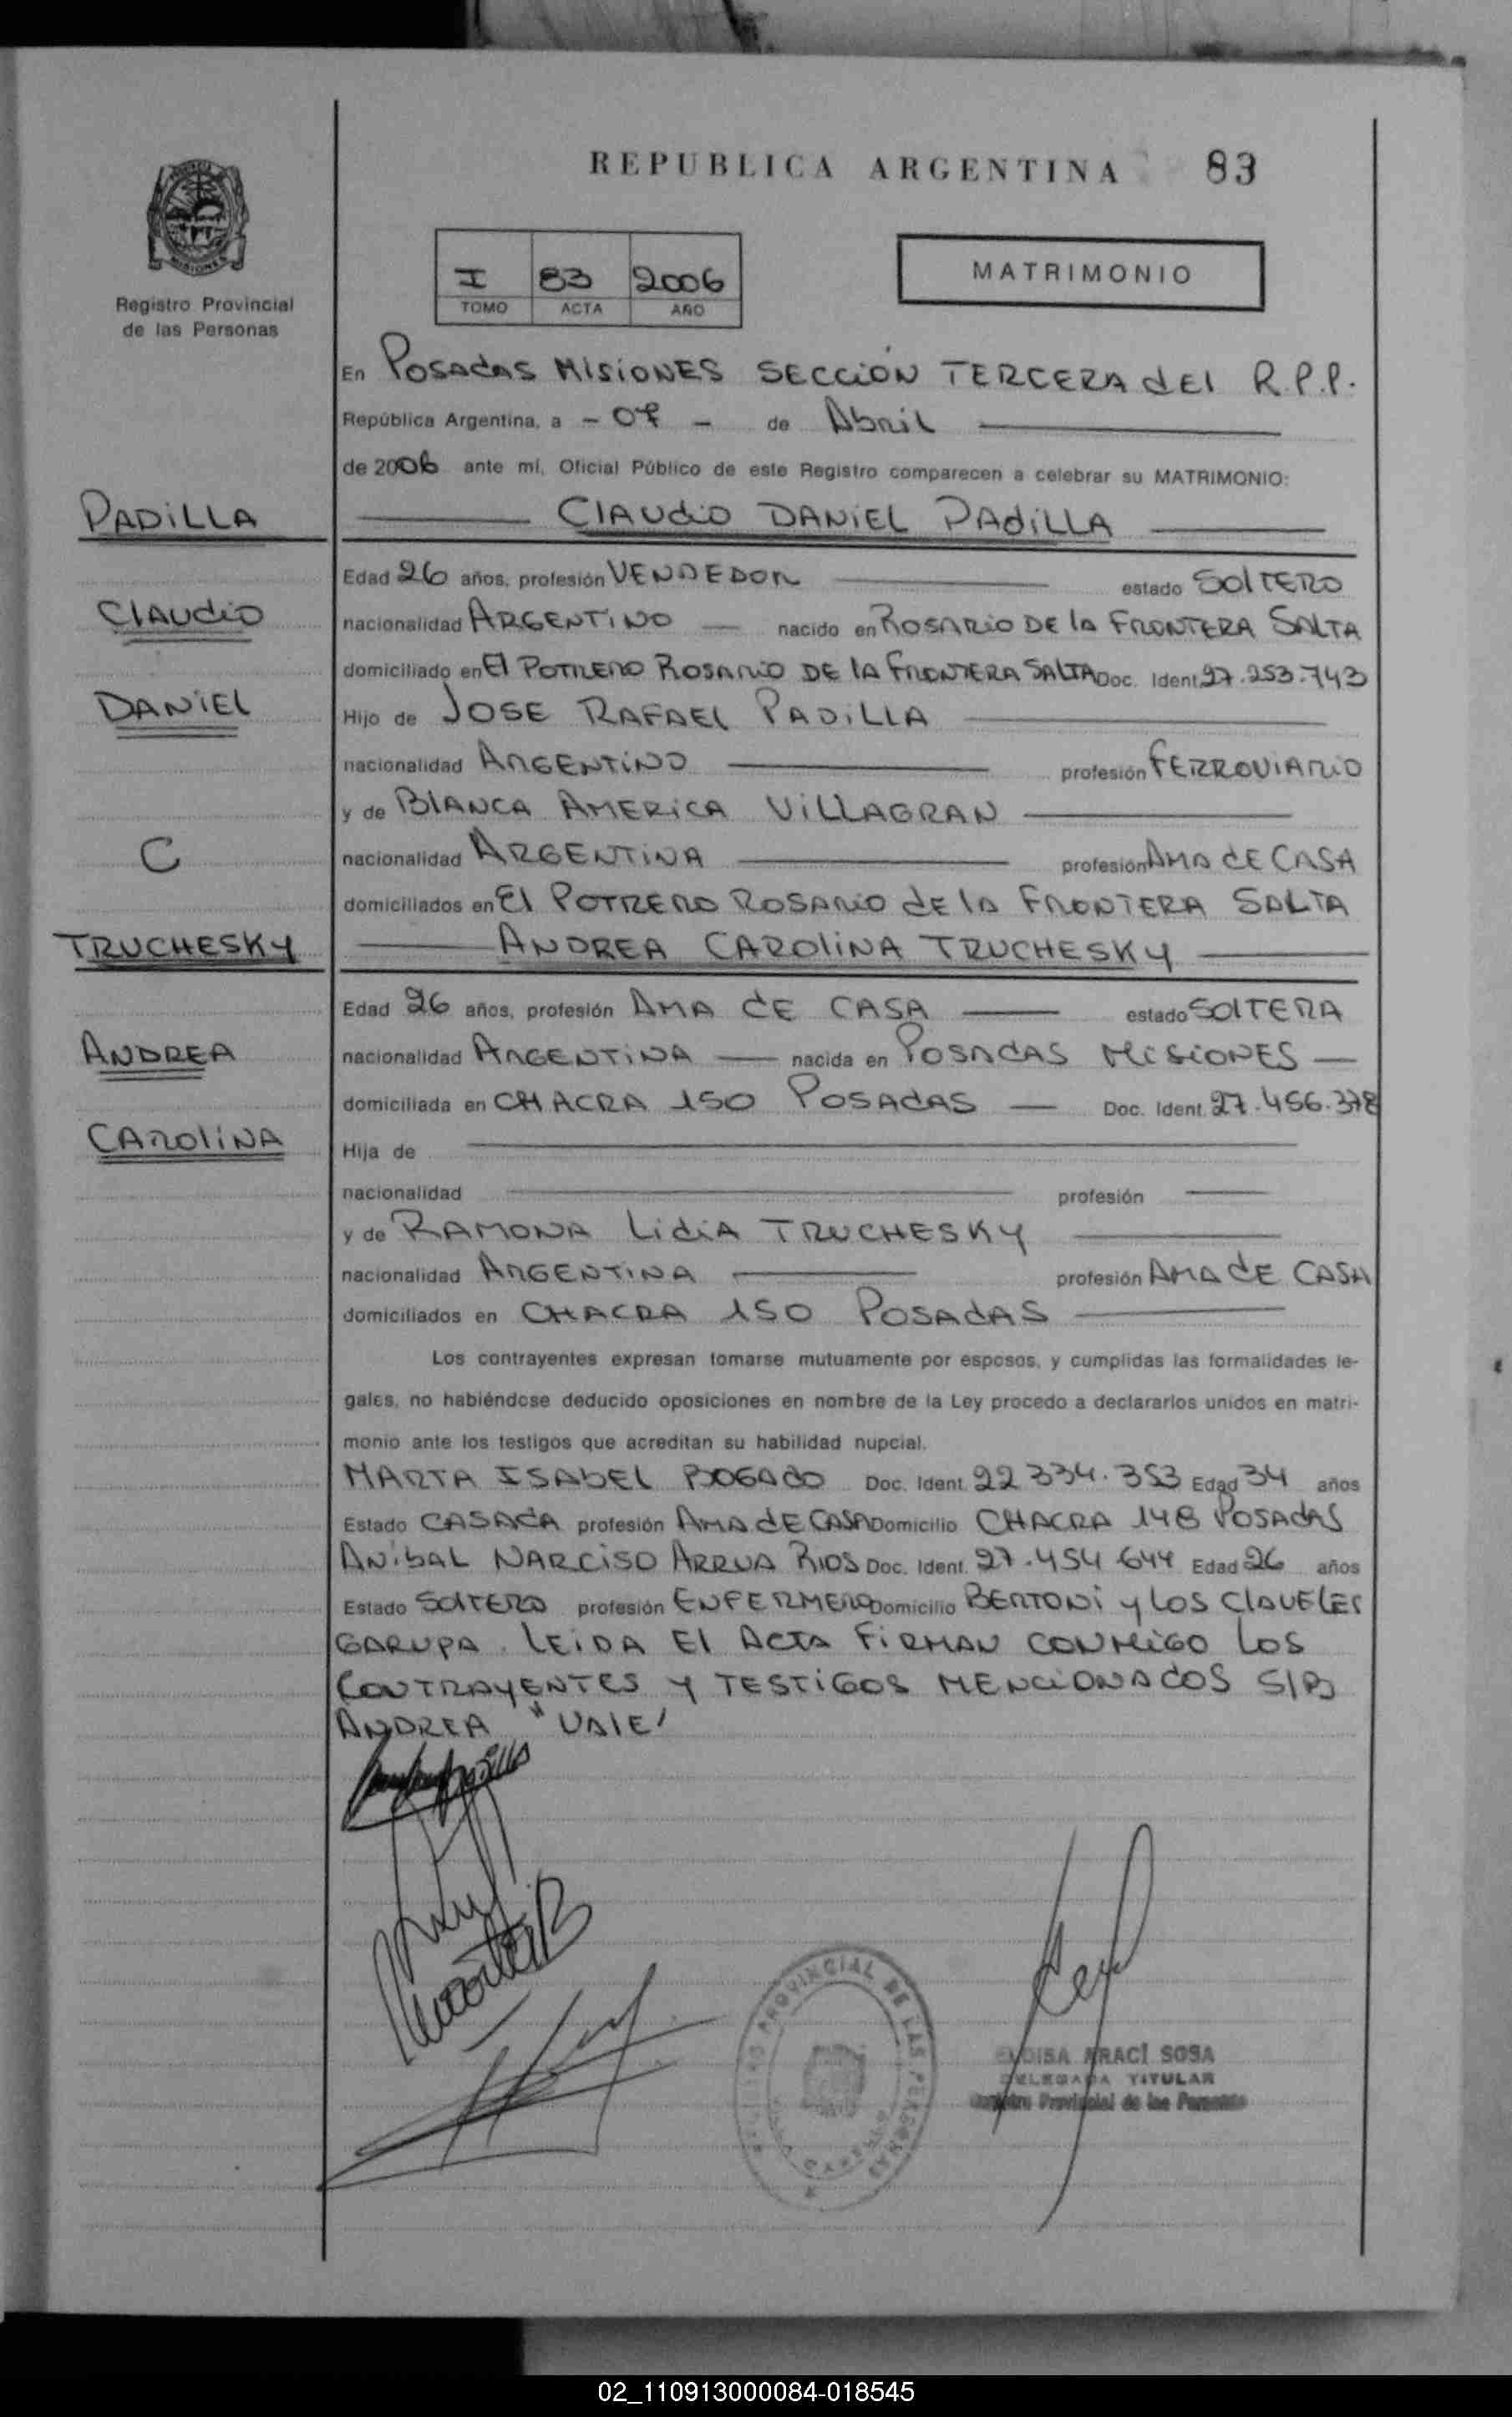 REPUBLICA ARGENTINA 83
MISIONES
Registro Provincial
de las Personas
I 83 2006
TOMO ACTA AÑO
MATRIMONIO
En POSADAS MISIONES SECCIÓN TERCERA del R.P.P.
República Argentina, a - 07 - de Abril
de 2006 ante mí, Oficial Público de este Registro comparecen a celebrar su MATRIMONIO:
PADILLA
CLAUDIO DANIEL PADILLA
Edad 26 años, profesión VENDEDOR estado SOLTERO
CLAUDIO
nacionalidad ARGENTINO nacido en ROSARIO DE LA FRONTERA SALTA
domiciliado en El POTRERO ROSARIO DE LA FRONTERA SALTA Doc. Ident. 27.253.743
DANIEL
Hijo de JOSE RAFAEL PADILLA
nacionalidad ARGENTINO profesión FERROVIARIO
y de BLANCA AMERICA VILLAGRAN
C
nacionalidad ARGENTINA profesión AMA de CASA
domiciliados en El POTRERO ROSARIO de la FRONTERA SALTA
TRUCHESKY
ANDREA CAROLINA TRUCHESKY
Edad 26 años, profesión AMA de CASA estado SOLTERA
ANDREA
nacionalidad ARGENTINA nacida en POSADAS MISIONES
domiciliada en CHACRA 150 POSADAS Doc. Ident. 27.456.378
CAROLINA
Hija de
nacionalidad profesión
y de RAMONA LIDIA TRUCHESKY
nacionalidad ARGENTINA profesión AMA de CASA
domiciliados en CHACRA 150 POSADAS
Los contrayentes expresan tomarse mutuamente por esposos, y cumplidas las formalidades le-
gales, no habiéndose deducido oposiciones en nombre de la Ley procedo a declararlos unidos en matri-
monio ante los testigos que acreditan su habilidad nupcial.
MARTA ISABEL BOGADO Doc. Ident. 22 334.353 Edad 34 años
Estado CASADA profesión AMA de CASA Domicilio CHACRA 148 POSADAS
ANIBAL NARCISO ARRUA RIOS Doc. Ident. 27.454 644 Edad 26 años
Estado SOLTERO profesión ENFERMERO Domicilio BERTONI y LOS CLAVELES
GARUPA. LEIDA El ACTA FIRMAN CONMIGO LOS
CONTRAYENTES Y TESTIGOS MENCIONADOS S/B
ANDREA "VALE"
PROVINCIAL DE LAS PERSONAS
ELOISA ARACÍ SOSA
DELEGADA TITULAR
Registro Provincial de las Personas
02_110913000084-018545